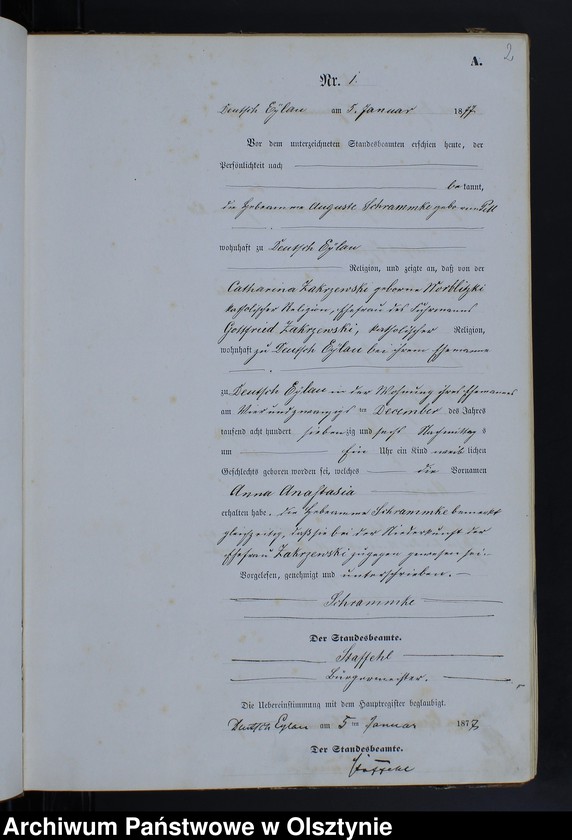 2
A.
Nr. 1
Deutsch Eylau am 5. Januar 1877
Vor dem unterzeichneten Standesbeamten erschien heute, der
Persönlichkeit nach
bekannt,
die Hebeamme Auguste Schrammke geborne
wohnhaft zu Deutsch Eylau
Religion, und zeigte an, daß von der
Catharina Zakrzewski geborne Worblitzki
katholischer Religion, Ehefrau des Fuhrmanns
Gottfried Zakrzewski, katholischer Religion,
wohnhaft zu Deutsch Eylau bei ihrem Ehemanne
zu Deutsch Eylau in der Wohnung ihres Ehemannes
am Vierundzwanzigsten December des Jahres
tausend acht hundert siebenzig und sechs Nachmittags
um Ein Uhr ein Kind weiblichen
Geschlechts geboren worden sei, welches die Vornamen
Anna Anastasia
erhalten habe. Die Hebeamme Schrammke bemerkt
gleichzeitig, daß sie bei der Niederkunft der
Ehefrau Zakrzewski zugegen gewesen sei.
Vorgelesen, genehmigt und unterschrieben.
Schrammke
Der Standesbeamte.
Staffehl
Bürgermeister.
Die Uebereinstimmung mit dem Hauptregister beglaubigt.
Deutsch Eylau am 5ten Januar 1877
Der Standesbeamte.
Staffehl
Archiwum Państwowe w Olsztynie